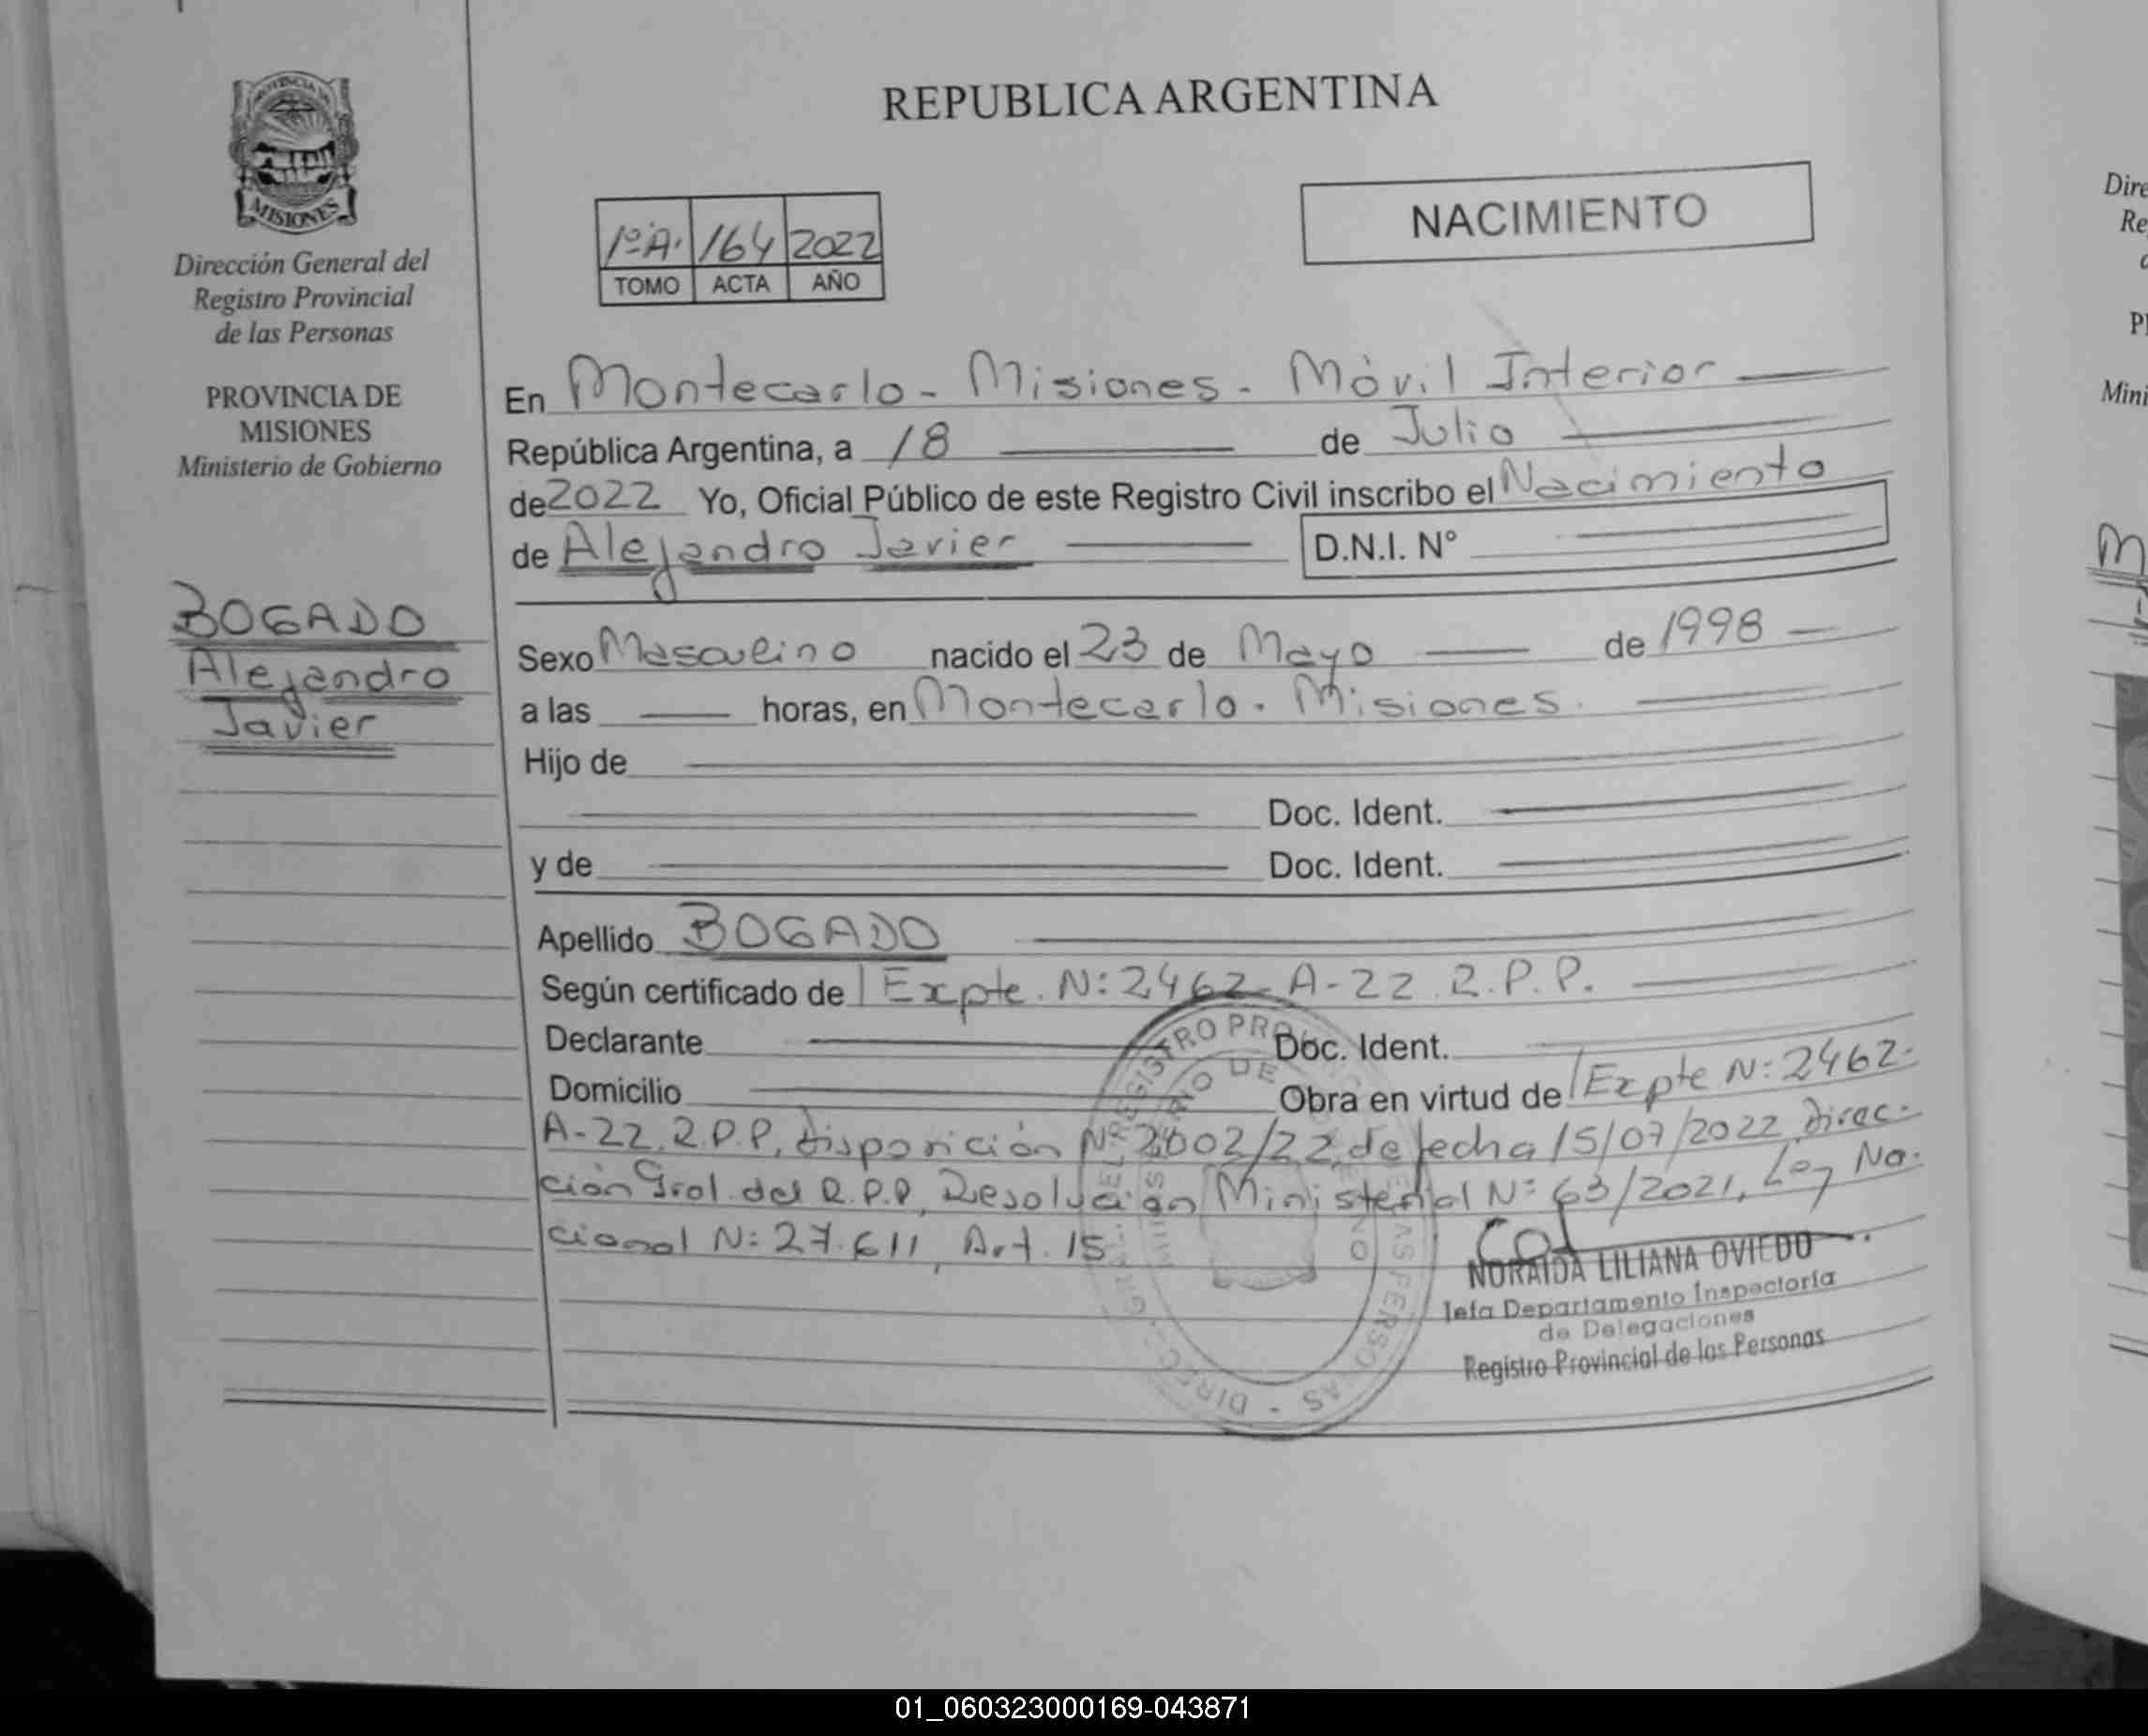 REPUBLICA ARGENTINA
PROVINCIA DE
MISIONES
Dirección General del
Registro Provincial
de las Personas
PROVINCIA DE
MISIONES
Ministerio de Gobierno
BOGADO
Alejandro
Javier
1º A. 164 2022
TOMO ACTA AÑO
NACIMIENTO
En Montecarlo - Misiones - Móvil Interior
República Argentina, a 18 de Julio
de 2022 Yo, Oficial Público de este Registro Civil inscribo el Nacimiento
de Alejandro Javier D.N.I. N°
Sexo Masculino nacido el 23 de Mayo de 1998
a las horas, en Montecarlo - Misiones.
Hijo de
Doc. Ident.
y de Doc. Ident.
Apellido BOGADO
Según certificado de Expte. N: 2462-A-22 R.P.P.
Declarante Doc. Ident.
Domicilio Obra en virtud de Expte N: 2462-
A-22. R.P.P, disposición Nº 2602/22 de fecha 15/07/2022 Direc-
ción Gral. del R.P.P, Resolución Ministerial Nº 63/2021, Ley Na-
cional N: 27.611, Art. 15
NORAIDA LILIANA OVIEDO
Jefa Departamento Inspectoría
de Delegaciones
Registro Provincial de las Personas
Dire
Re
Mini
01_060323000169-043871